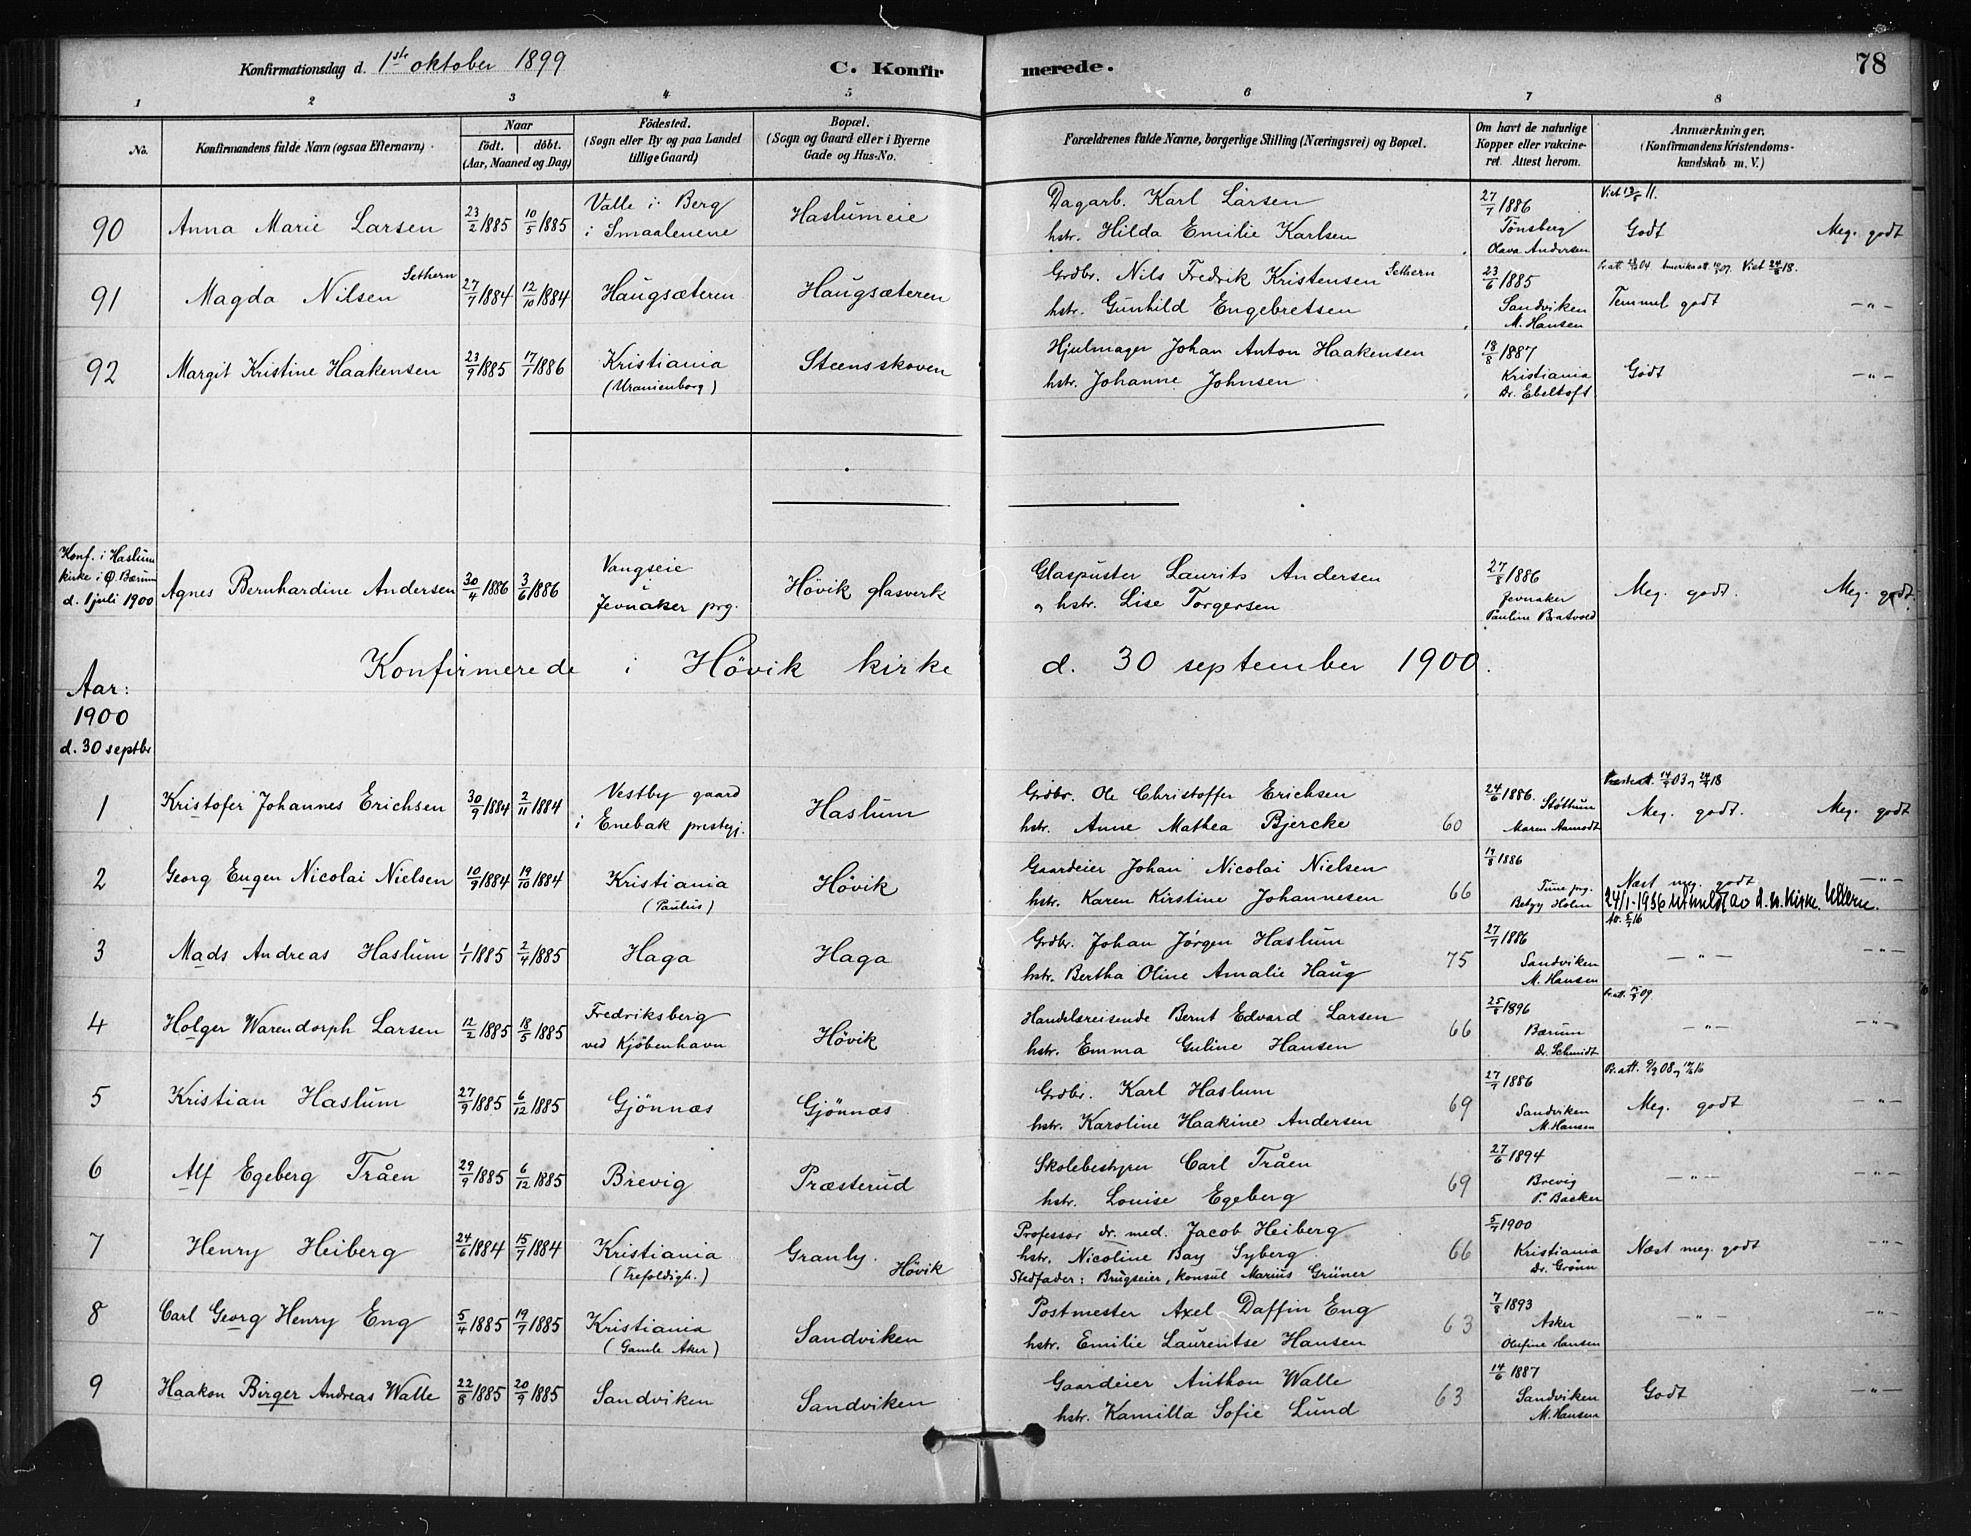 Konfirmationsdag d. 1ste oktober 1899
C. Konfirmerede.
78
1 2 3 4 5 6 7 8
No.
Konfirmandens fulde Navn (ogsaa Efternavn)
Naar
født. døbt.
(Aar, Maaned og Dag)
Fødested.
(Sogn eller By og paa Landet tillige Gaard)
Bopæl.
(Sogn og Gaard eller i Byerne Gade og Hus-No.
Forældrenes fulde Navne, borgerlige Stilling (Næringsvei) og Bopæl.
Om havt de naturlige Kopper eller vakcineret. Attest herom.
Anmærkninger.
(Konfirmandens Kristendomskundskab m. V.)
90 Anna Marie Larsen 23/2 1885 10/5 1885 Valle i Berg i Smaalenene Haslumeie
Dagarb. Karl Larsen
hstr. Hilda Emilie Karlsen
27/7 1886 Tønsberg Olava Andersen
Viet 13/5 11.
Godt Meg. godt
91 Magda Nilsen Sethern 27/7 1884 12/10 1884 Haugsæteren Haugsæteren
Grdbr. Nils Fredrik Kristensen Sethern
hstr. Gunhild Engebretsen
23/6 1885 Sandviken M. Hansen
Temmel godt —"—
92 Margit Kristine Haakensen 23/9 1885 17/1 1886 Kristiania (Uranienborg) Steensskoven
Hjulmager Johan Anton Haakensen
hstr. Johanne Johnsen
18/8 1887 Kristiania Dr. Ebeltoft
Godt —"—
Konf. i Haslum kirke i Ø. Bærum d. 1 juli 1900
Agnes Bernhardine Andersen 30/4 1886 3/6 1886 Vangseie i Jevnaker prg. Hövik glasverk
Glaspuster Laurits Andersen
og hstr. Lise Torgersen
27/8 1886 Jevnaker Pauline Bratvold
Meg. godt. Meg. godt.
Konfirmerede i Hövik kirke d. 30 september 1900.
Aar:
1900
d. 30 septbr
1 Kristofer Johannes Erichsen 30/9 1884 2/11 1884 Vestby gaard i Enebak prestegj. Haslum
Grdbr. Ole Christoffer Erichsen
hstr. Anne Mathea Bjercke 60
24/6 1886. Støttum Maren Aamodt
Meg. godt. Meg. godt
2 Georg Eugen Nicolai Nielsen 10/9 1884 19/10 1884 Kristiania (Paulus) Hövik
Gaardeier Johan Nicolai Nielsen
hstr. Karen Kirstine Johannesen 66
19/8 1886 Tune prg. Betzy Holm
Næst meg. godt —"—
24/1-1936 utmeldt av d. n. kirke. Ullern.
3 Mads Andreas Haslum 1/1 1885 2/4 1885 Haga Haga
Grdbr. Johan Jørgen Haslum
hstr. Bertha Oline Amalie Haug 75
27/7 1886 Sandviken M. Hansen
—"— —"—
4 Holger Warendorph Larsen 12/2 1885 18/5 1885 Fredriksberg ved Kjöbenhavn Hövik
Handelsreisende Bernt Edvard Larsen
hstr. Emma Guline Hansen 66
25/8 1896 Bærum Dr. Schmidt
—"— —"—
5 Kristian Haslum 27/9 1885 6/12 1885 Gjönnæs Gjönnæs
Grdbr. Karl Haslum
hstr. Karoline Haakine Andersen 69
27/7 1886 Sandviken M. Hansen
Meg. godt —"—
6 Alf Egeberg Tråen 29/9 1885 6/12 1885 Brevig Præsterud
Skolebestyrer Carl Tråen
hstr. Louise Egeberg 69
27/6 1894 Brevig P. Backer
—"— —"—
7 Henry Heiberg 24/6 1884 15/7 1884 Kristiania (Trefoldigh.) Granly. Hövik
Professor dr. med. Jacob Heiberg
hstr. Nicoline Bay Syberg 66
Stedfader: Brugseier, Konsul Marius Grüner
5/7 1900 Kristiania Dr. Grønn
Næst meg. godt —"—
8 Carl Georg Henry Eng 5/4 1885 19/7 1885 Kristiania (Gamle Aker) Sandviken
Postmester Axel Daffin Eng
hstr. Emilie Laurentse Hansen 63
7/8 1893 Asker Olufine Hansen
—"— —"—
9 Haakon Birger Andreas Walle 22/8 1885 20/9 1885 Sandviken Sandviken
Gaardeier Anthon Walle
hstr. Kamilla Sofie Lund 63
14/6 1887 Sandviken M. Hansen
Godt —"—